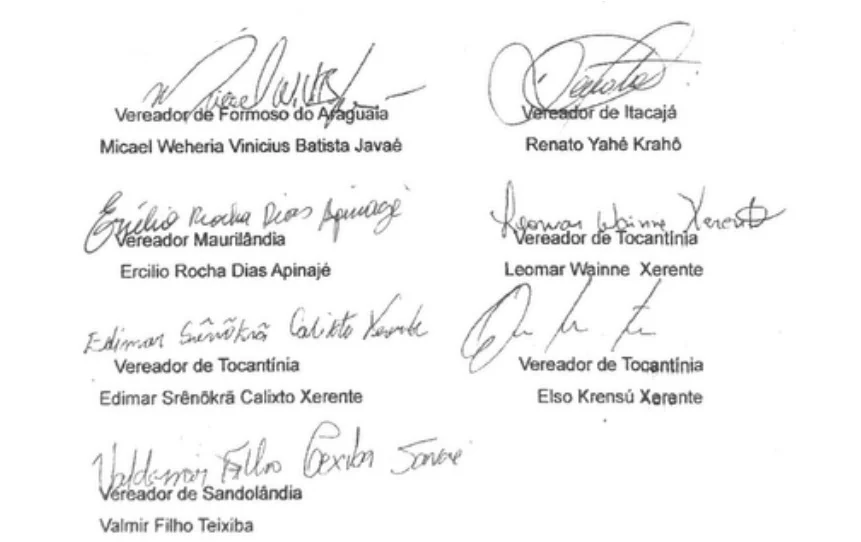 Vereador de Formoso do Araguaia
Micael Weheria Vinicius Batista Javaé
Vereador de Itacajá
Renato Yahé Krahô
Ercílio Rocha Dias Apinagé
Vereador Maurilândia
Ercilio Rocha Dias Apinajé
Leomar Wainne Xerente
Vereador de Tocantínia
Leomar Wainne Xerente
Edimar Srênõkrã Calixto Xerente
Vereador de Tocantínia
Edimar Srênõkrã Calixto Xerente
Vereador de Tocantínia
Elso Krensú Xerente
Filho
Vereador de Sandolândia
Valmir Filho Teixiba